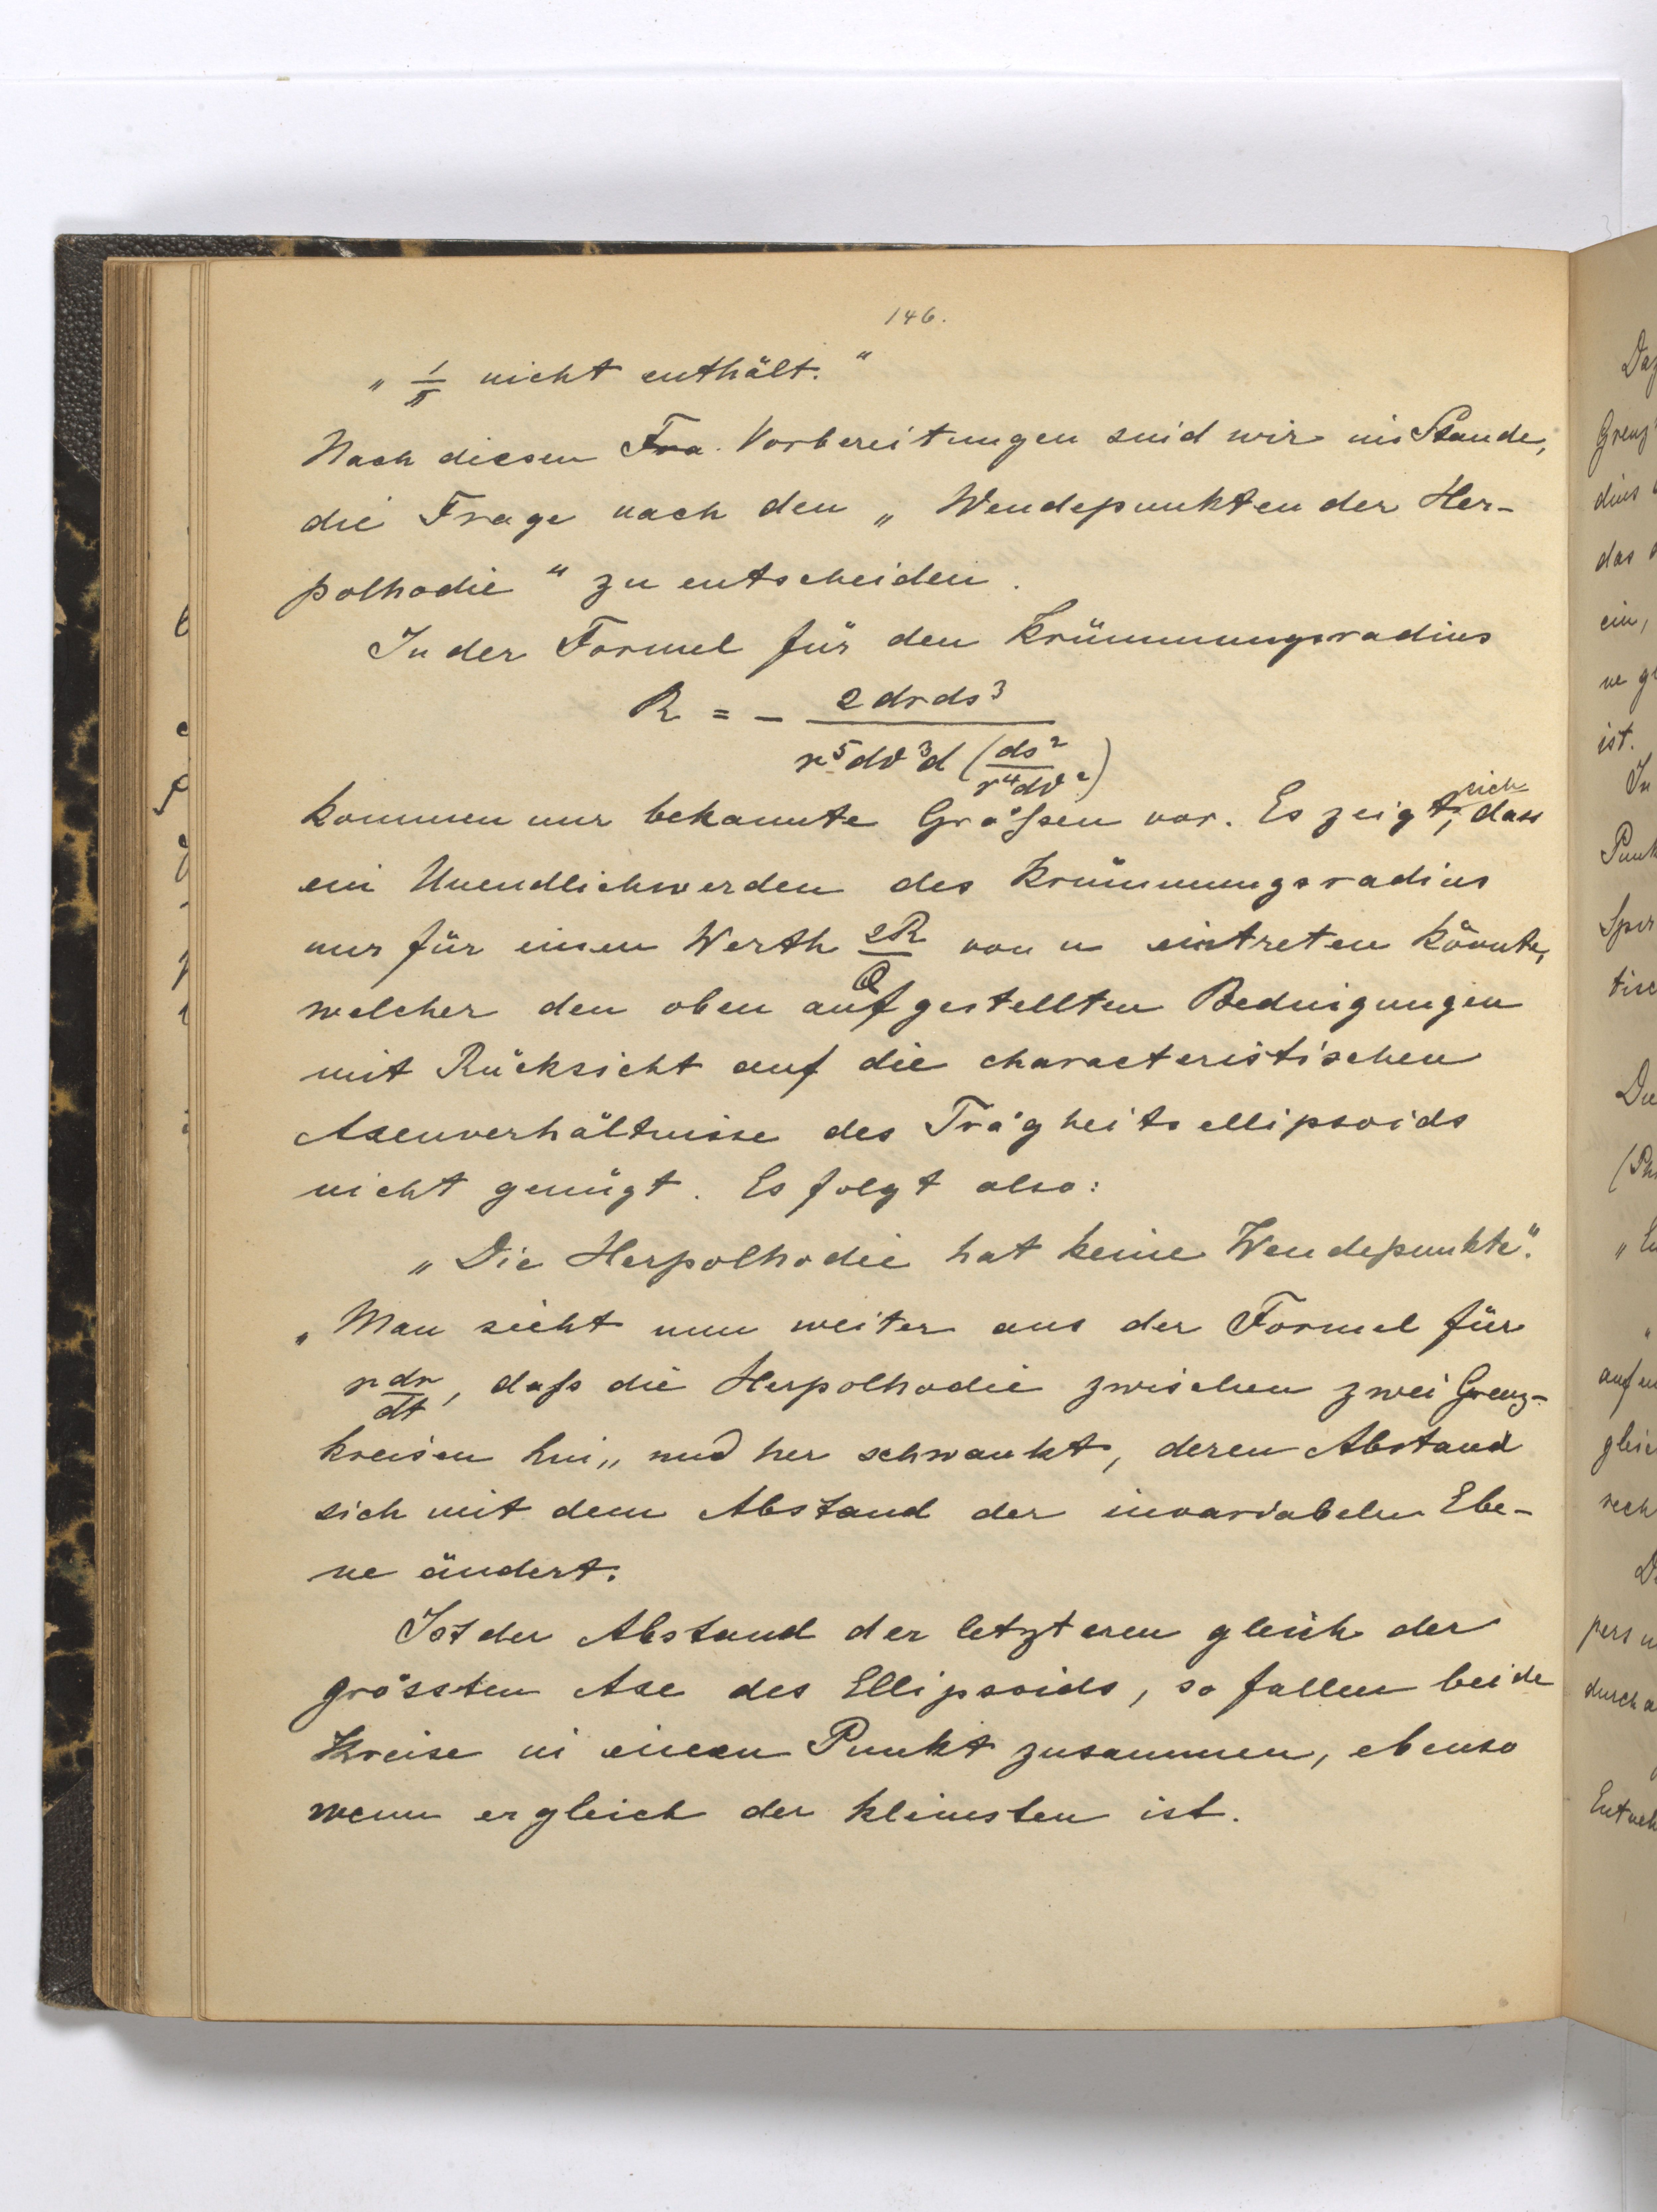 146.
„ 1/π nicht enthält."
Nach diesen Fra. Vorbereitungen sind wir im Stande,
die Frage nach den „ Wendepunkten der Her-
polhodie " zu entscheiden.
In der Formel für den Krümmungsradius
R = - 2drds³ / r⁵dϑ³d (ds²/r⁴dϑ²)
kommen nur bekannte Größen vor. Es zeigt sich, dass
ein Unendlichwerden des Krümmungsradius
nur für einen Werth 2R/Q von u eintreten könnte,
welcher den oben aufgestellten Bedingungen
mit Rücksicht auf die characteristischen
Axenverhältnisse des Trägheitsellipsoids
nicht genügt. Es folgt also:
„Die Herpolhodie hat keine Wendepunkte".
„Man sieht nun weiter aus der Formel für
r dr/dt, daß die Herpolhodie zwischen zwei Grenz-
kreisen hin„ und her schwankt, deren Abstand
sich mit dem Abstand der invariabelen Ebe-
ne ändert.
Ist der Abstand der letzteren gleich der
grössten Axe des Ellipsoids, so fallen beide
Kreise in einen Punkt zusammen, ebenso
wenn er gleich der kleinsten ist.